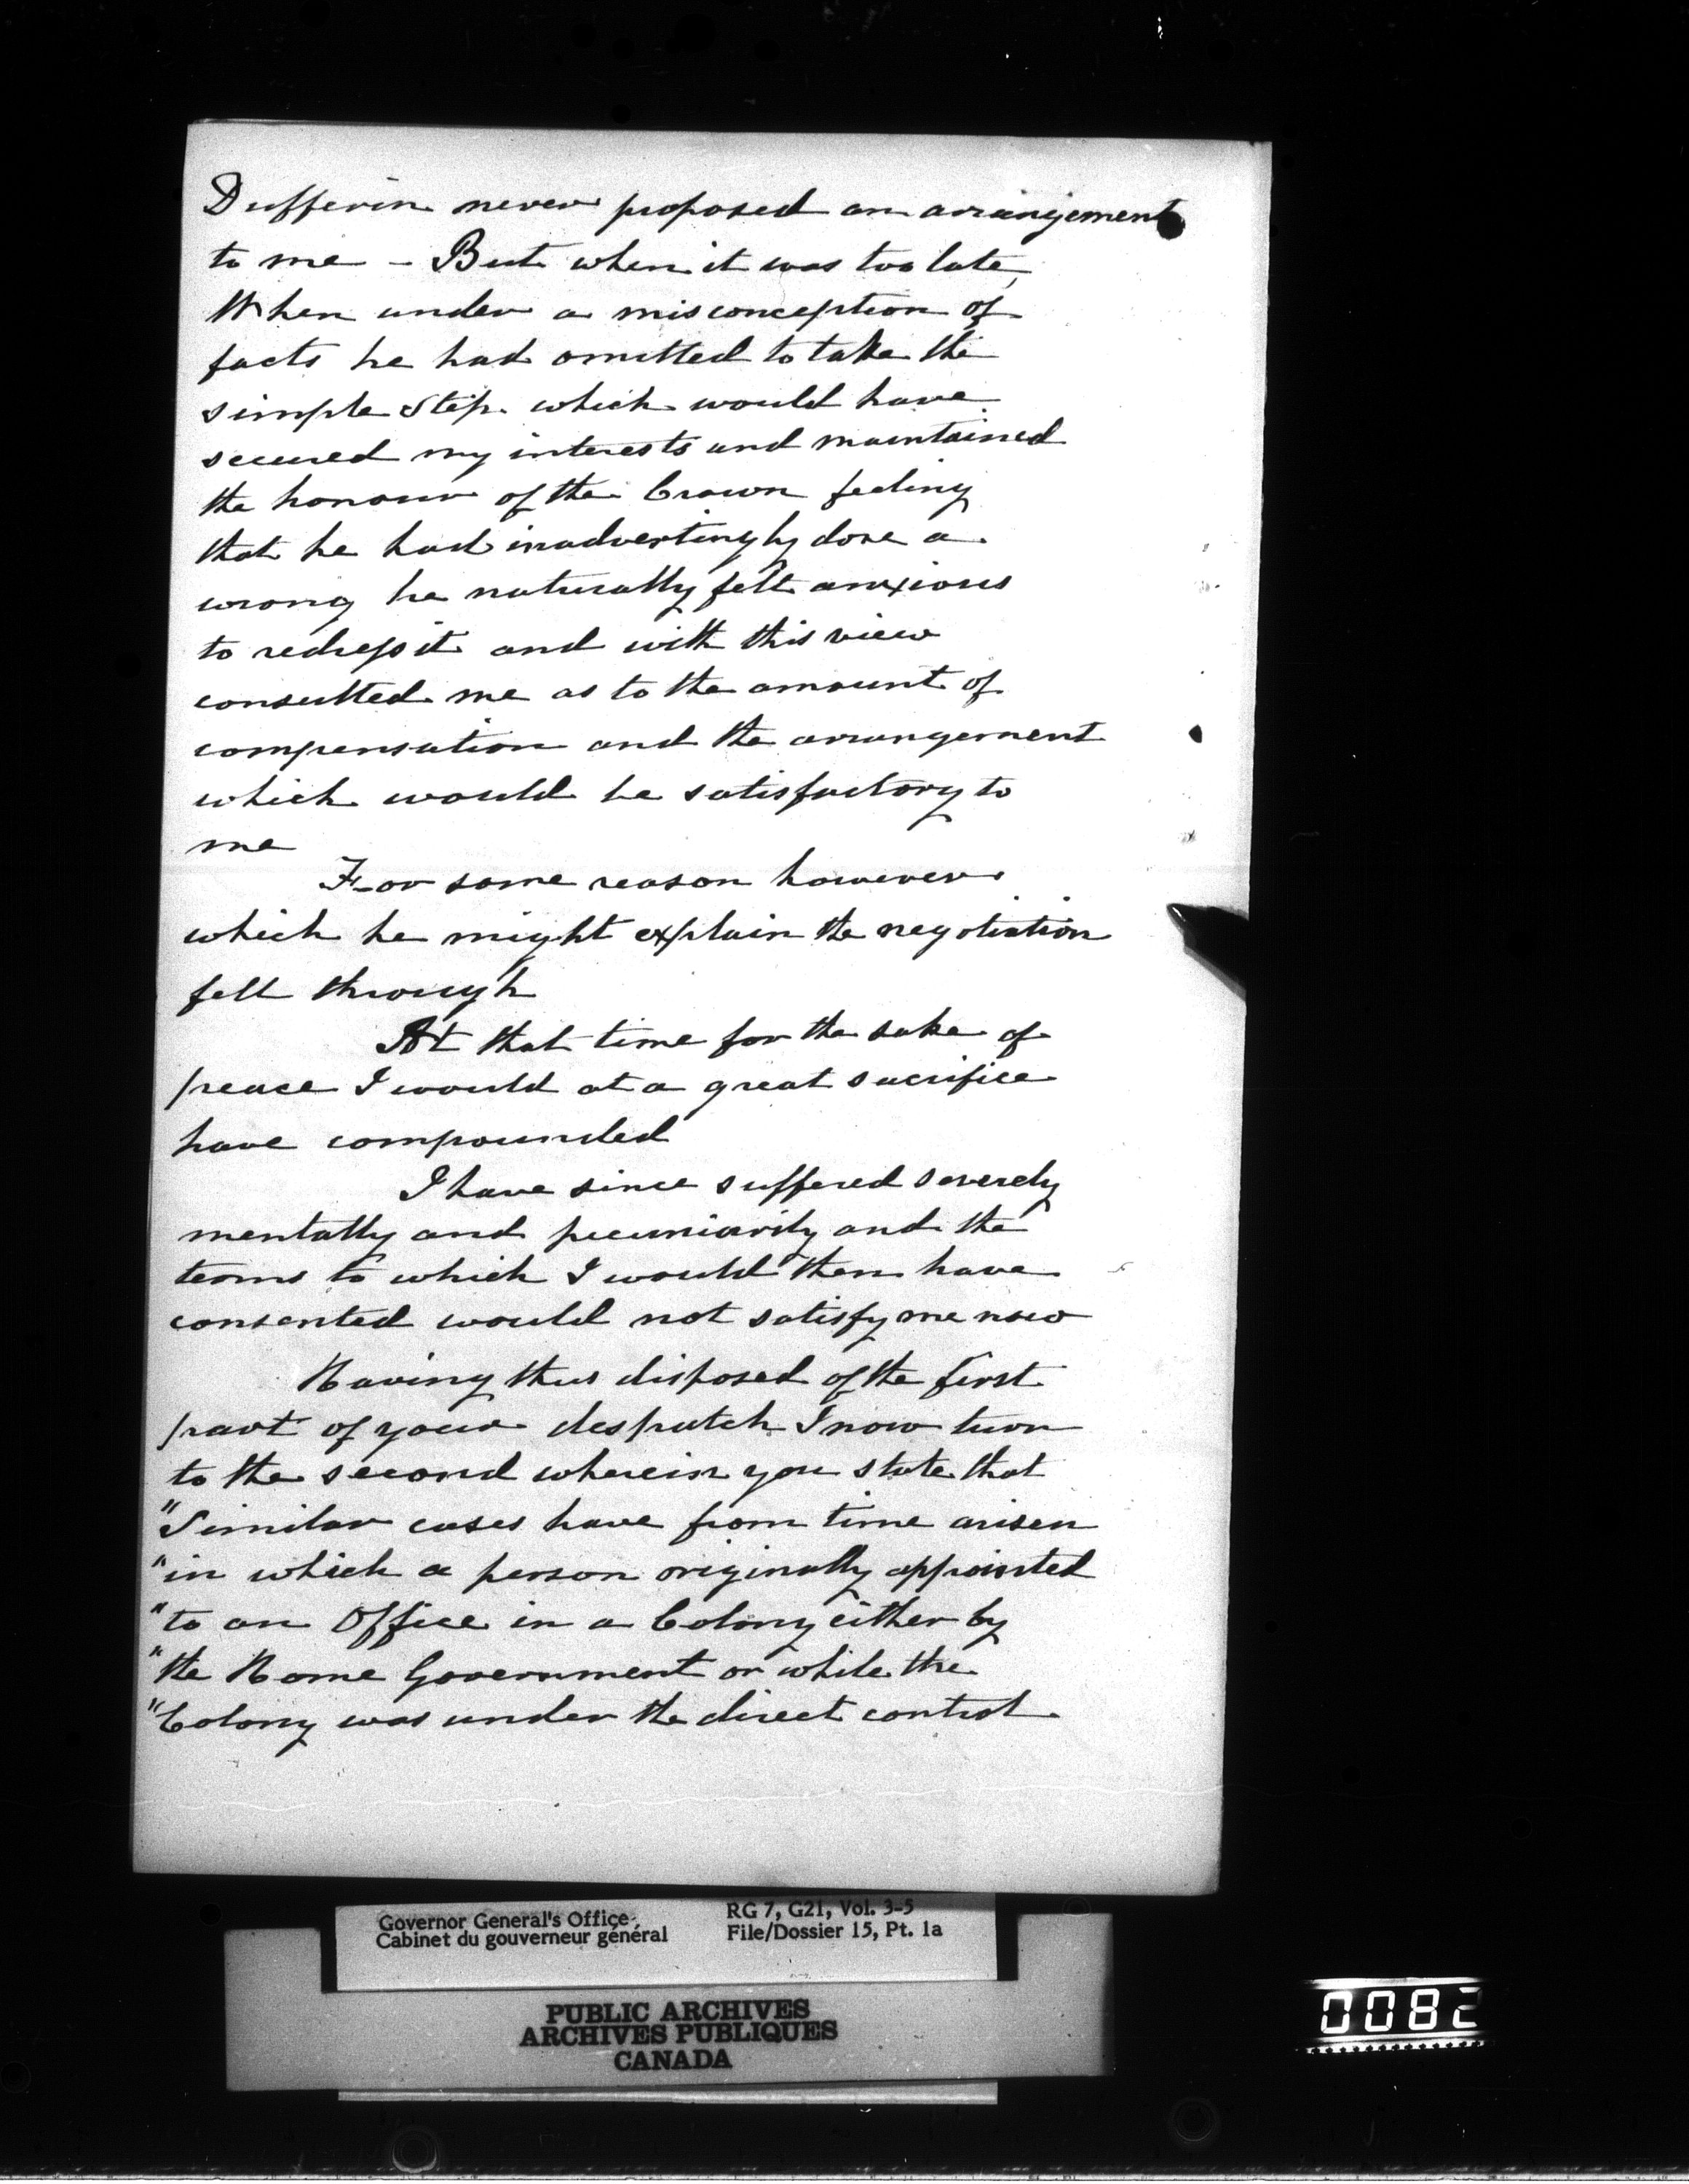 Dufferin never proposed an arrangement
to me - But when it was too late,
When under a misconception of
facts he had omitted to take the
simple step which would have
secured my interests and maintained
the honour of the Crown feeling
that he had inadvertingly done a
wrong he naturally felt anxious
to redress it and with this view
consulted me as to the amount of
compensation and the arrangement
which would be satisfactory to
me
For some reason however
which he might explain the negotiation
fell through
At that time for the sake of
peace I would at a great sacrifice
have compounded
I have since suffered severely
mentally and pecuniarily and the
terms to which I would then have
consented would not satisfy me now
Having thus disposed of the first
part of your despatch I now turn
to the second wherein you state that
"Similar cases have from time arisen
"in which a person originally appointed
"to an Office in a Colony either by
"the Home Government or while the
"Colony was under the direct control
Governor General's Office
Cabinet du gouverneur général
RG 7, G21, Vol. 3-5
File/Dossier 15, Pt. 1a
PUBLIC ARCHIVES
ARCHIVES PUBLIQUES
CANADA
0082